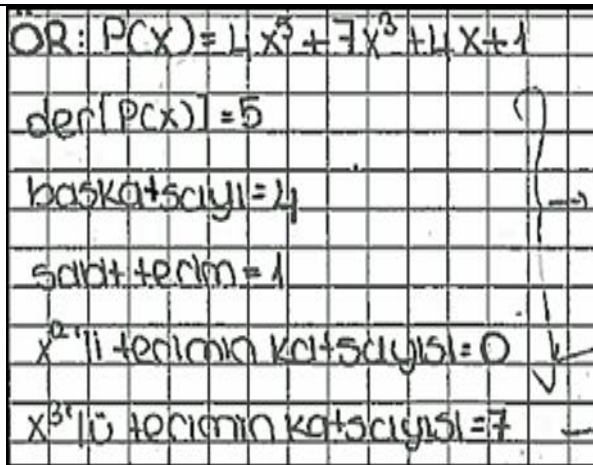 ÖR: P(X) = 4x⁵ + 7x³ + 4x + 1
der[P(x)] = 5
baskatsayı = 4
sabit terim = 1
x²'li terimin katsayısı = 0
x³'lü terimin katsayısı = 7